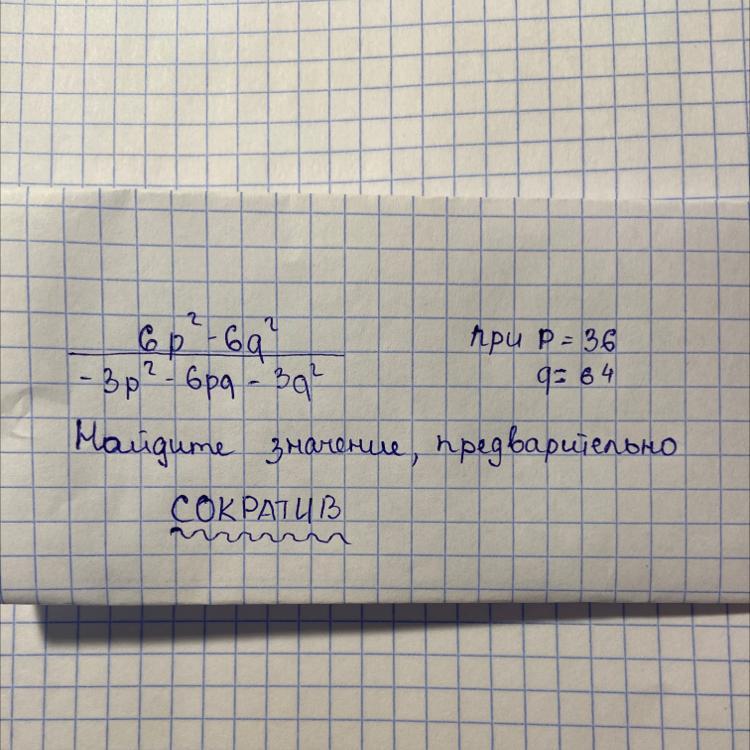 6p² - 6q² при p = 36
-3p² - 6pq - 3q² q = 64
Найдите значение, предварительно
СОКРАТИВ